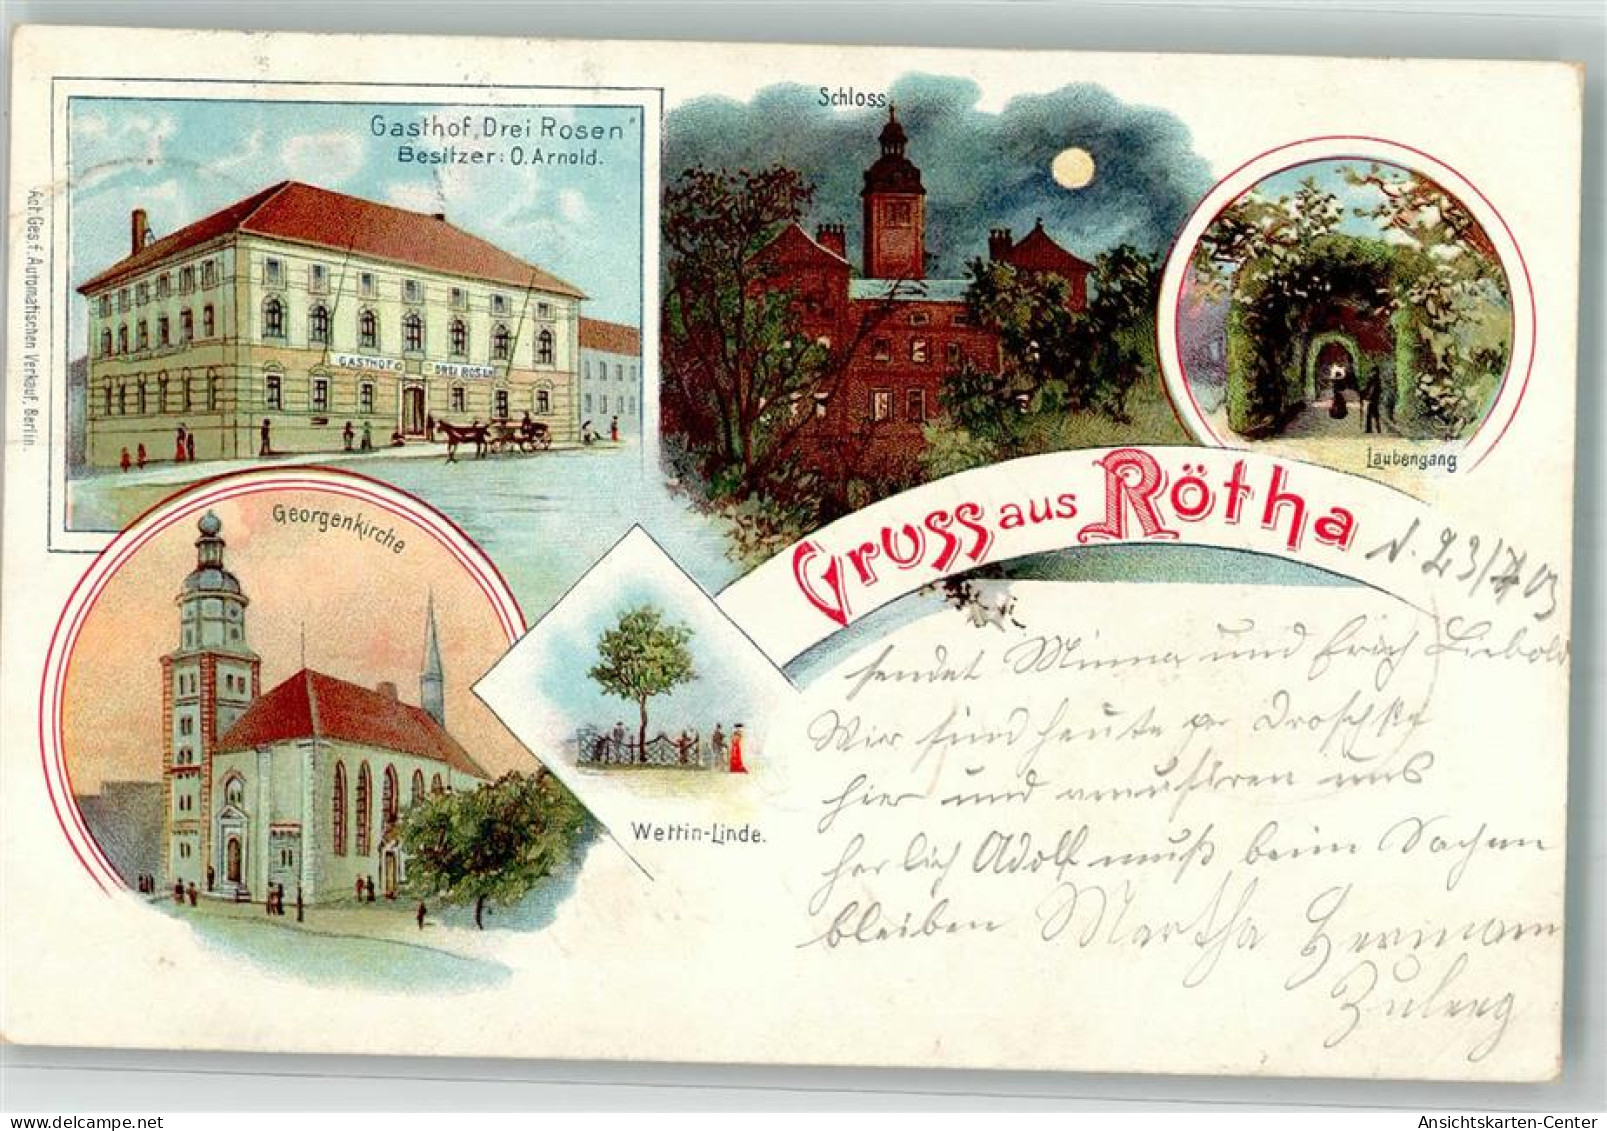 Gasthof „Drei Rosen"
Besitzer: O. Arnold.
GASTHOF Z. DREI ROSEN
Act. Ges. f. Automatischen Verkauf, Berlin.
Schloss
Laubengang
Georgenkirche
Wettin-Linde.
Gruss aus Rötha
d. 23/7 03
sendet Minna und Erich Liebold
Wir sind heute per Droschke
hier und amusiren uns
herlich Adolf muß beim
bleiben Martha Hermann
Ansichtskarten-Center